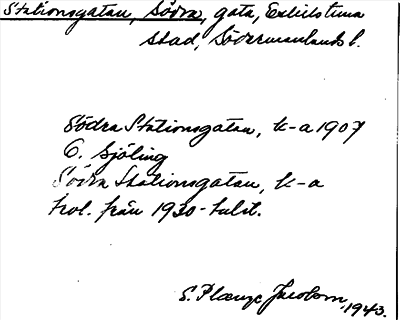 Stationsgatan, Södra, gata, Eskilstuna
stad, Södermanlands l.
Södra Stationsgatan, k-a 1907
C. Sjöling
Södra Stationsgatan, k-a
kol. från 1930-talet.
S. Plænge Jacobson, 1943.